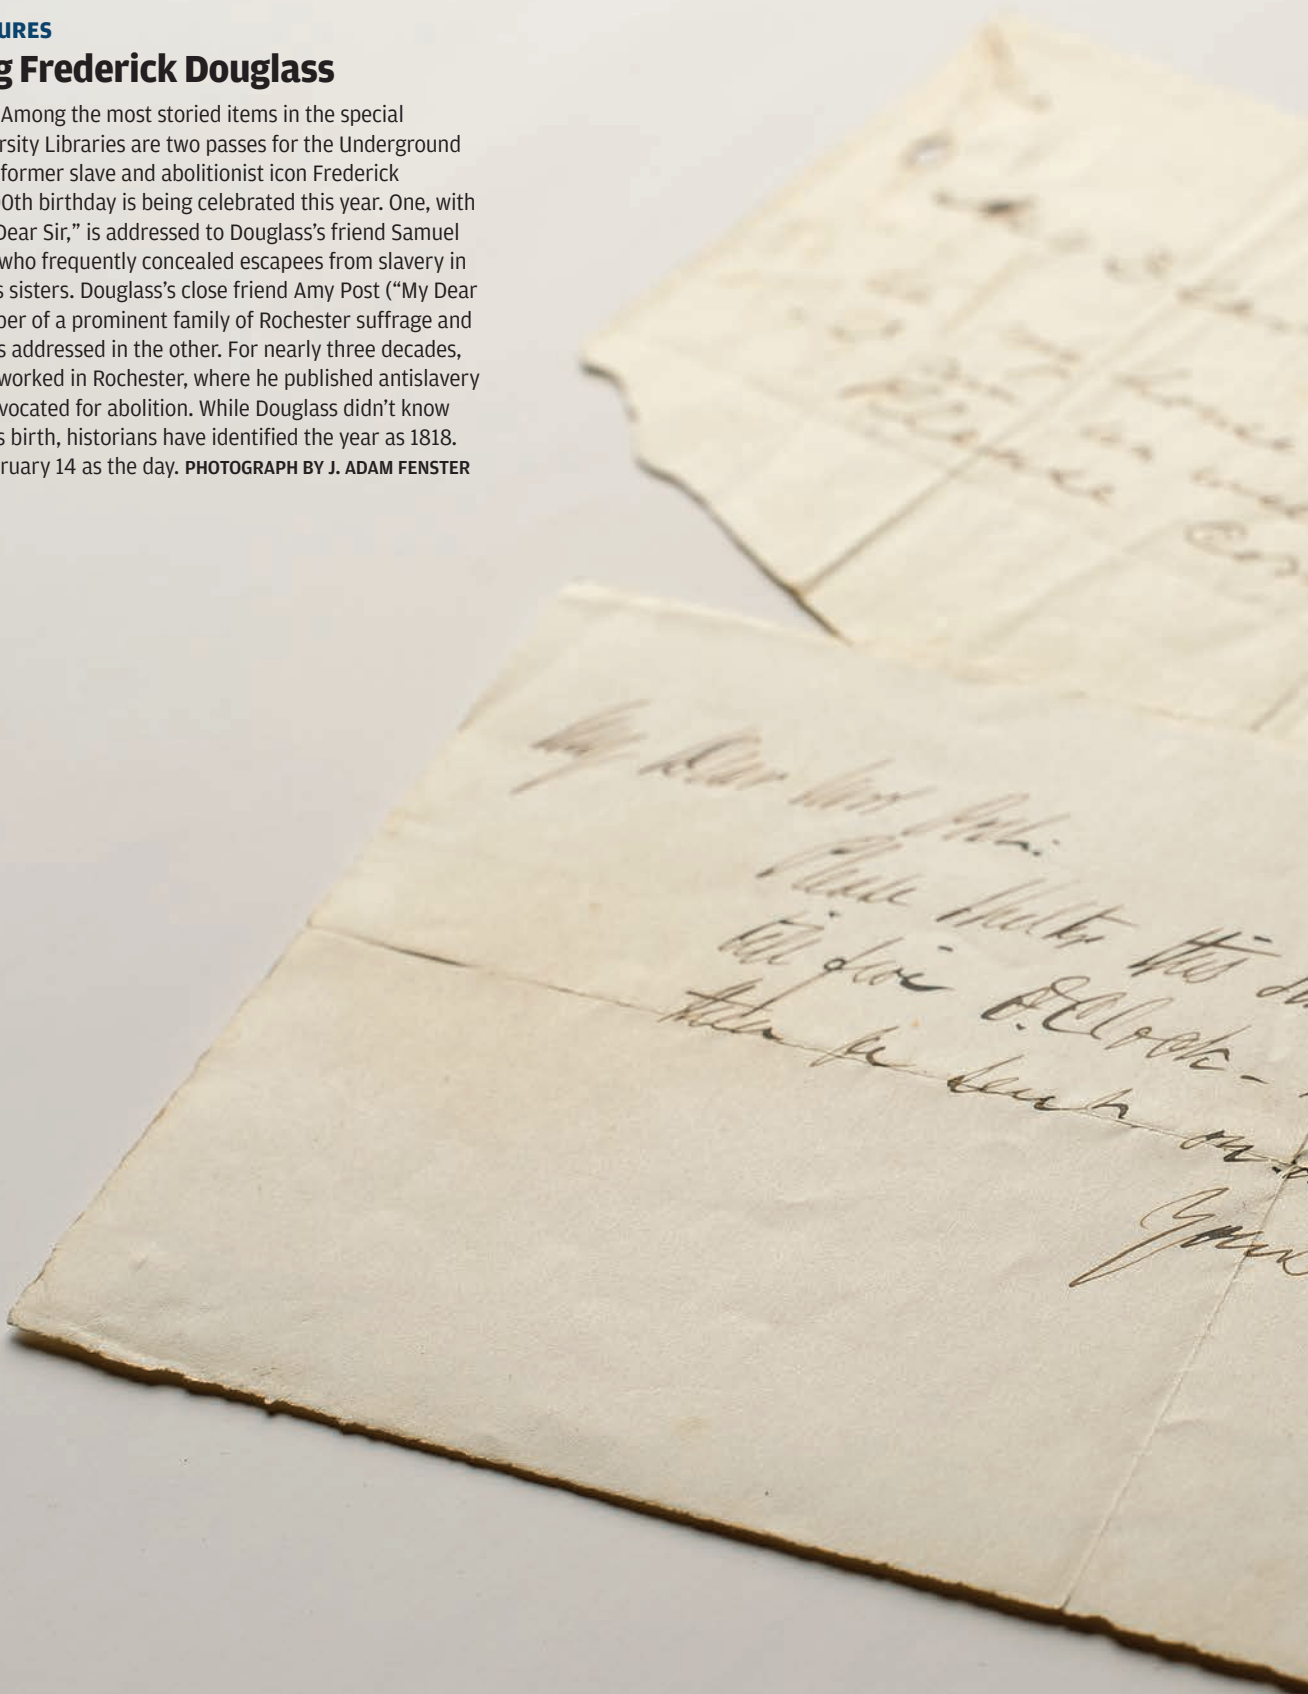 URES
g Frederick Douglass
Among the most storied items in the special
rsity Libraries are two passes for the Underground
former slave and abolitionist icon Frederick
0th birthday is being celebrated this year. One, with
Dear Sir,” is addressed to Douglass’s friend Samuel
who frequently concealed escapees from slavery in
s sisters. Douglass’s close friend Amy Post (“My Dear
ber of a prominent family of Rochester suffrage and
s addressed in the other. For nearly three decades,
worked in Rochester, where he published antislavery
vocated for abolition. While Douglass didn’t know
s birth, historians have identified the year as 1818.
ruary 14 as the day. PHOTOGRAPH BY J. ADAM FENSTER
my house
Please Com
My Dear Mrs Post:
Please shelter this
till five O.Clock-
then be sent on
Your